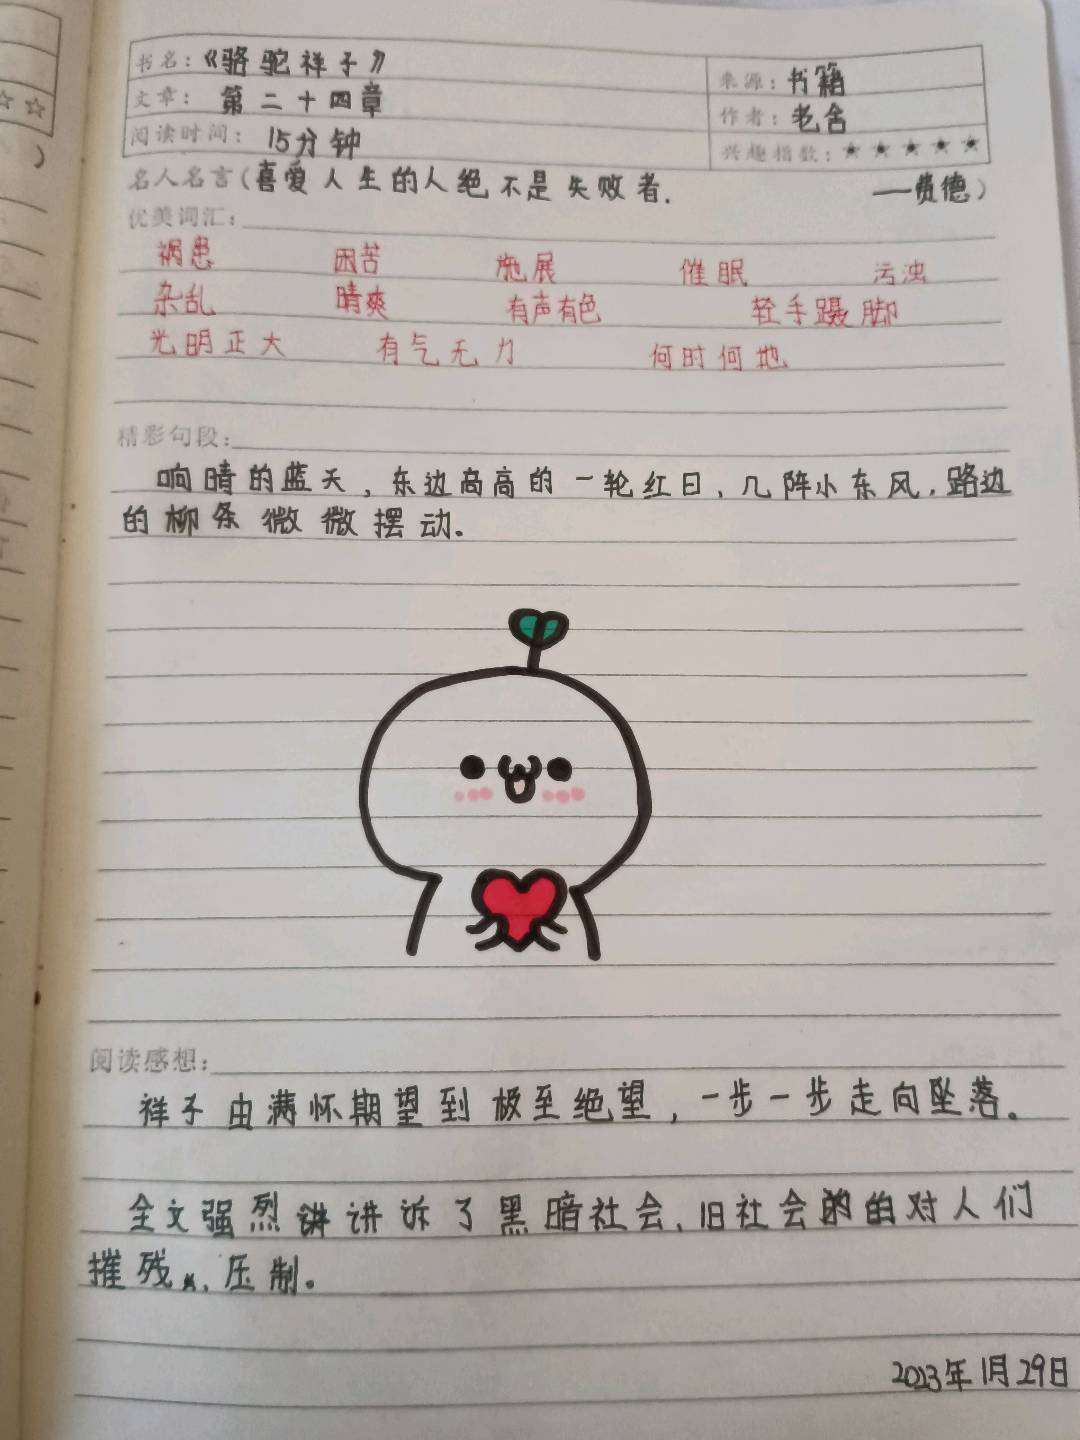 书名：《骆驼祥子》
来源：书籍
文章：第二十四章
作者：老舍
阅读时间：15分钟
兴趣指数：★★★★★
名人名言（喜爱人生的人绝不是失败者.——费德）
优美词汇：
祸患 困苦 施展 催眠 污浊
杂乱 晴爽 有声有色 轻手蹑脚
光明正大 有气无力 何时何地
精彩句段：
响晴的蓝天，东边高高的一轮红日，几阵小东风，路边
的柳条微微摆动.
阅读感想：
祥子由满怀期望到极至绝望，一步一步走向坠落。
全文强烈讲诉了黑暗社会、旧社会的对人们
摧残、压制。
2023年1月29日